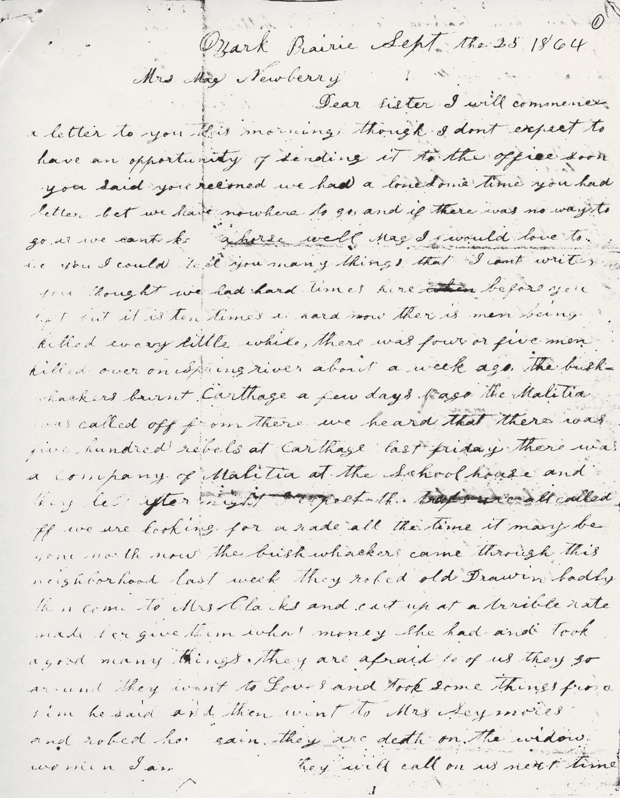 1
Ozark Prairie Sept the 25 1864
Mrs Mag Newberry
Dear sister I will commence
a letter to you this morning, though I dont expect to
have an opportunity of sending it to the office soon
you said you reconed we had a lonesome time you had
letter bet we have nowhere to go and if there was no way to
go as we cant a horse well Mag I would love to
you I could tell you many things that I cant write,
you thought we had hard times here when before you
but it is ten times hard now ther is men being
killed every little while, there was four or five men
killed over on Spring river about a week ago. the bush-
whackers burnt Carthage a few days ago the Malitia
was called off from there we heard that there was
five hundred rebels at Carthage last friday there was
a company of Malitia at the School house and
they left all called
off we are looking for a rade all the time it may be
north now the bushwhackers came through this
neighborhood last week they robed old Drawin badly
then come to Mrs Clacks and cut up at a trrible rate
made her give them what money she had and took
a good many things. they are afraid of us they go
around they went to Loves and took some things from
him he said and then went to Mrs Seymores
and robed gain. they are deth on the widow
women I am they will call on us next time